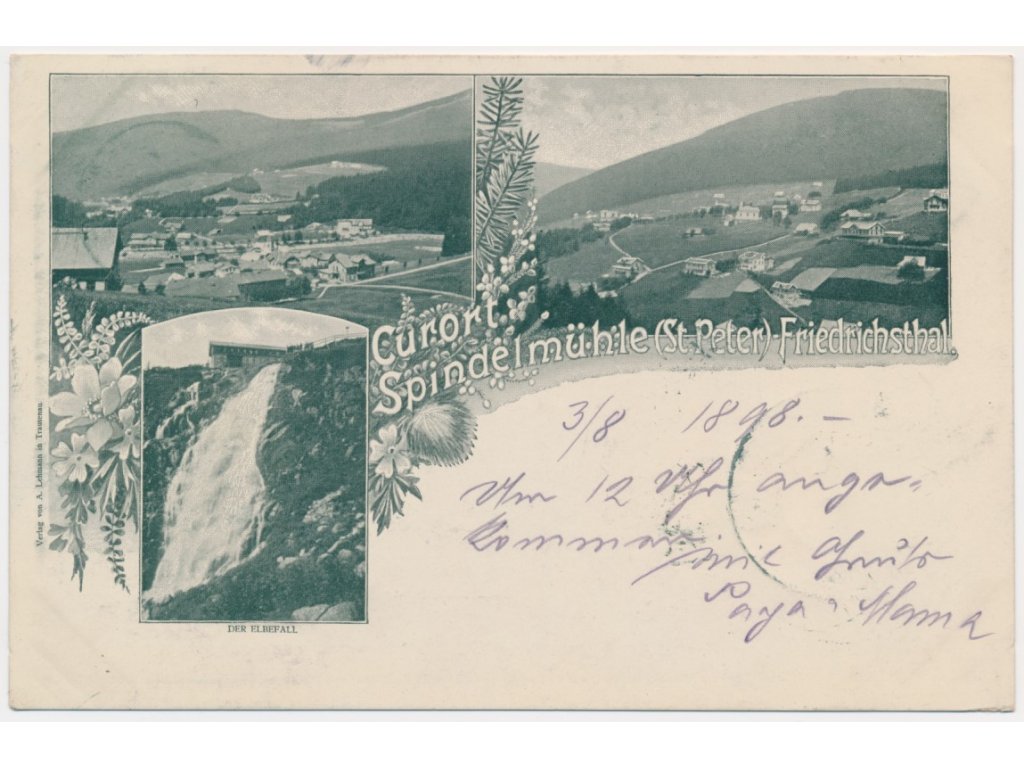 Curort
Spindelmühle (St. Peter)-Friedrichsthal.
3/8 1898.-
Um 12 Uhr ange-
kommen, mit Gruß
Papa, Mama
DER ELBEFALL
Verlag von A. Lehmann in Trautenau.